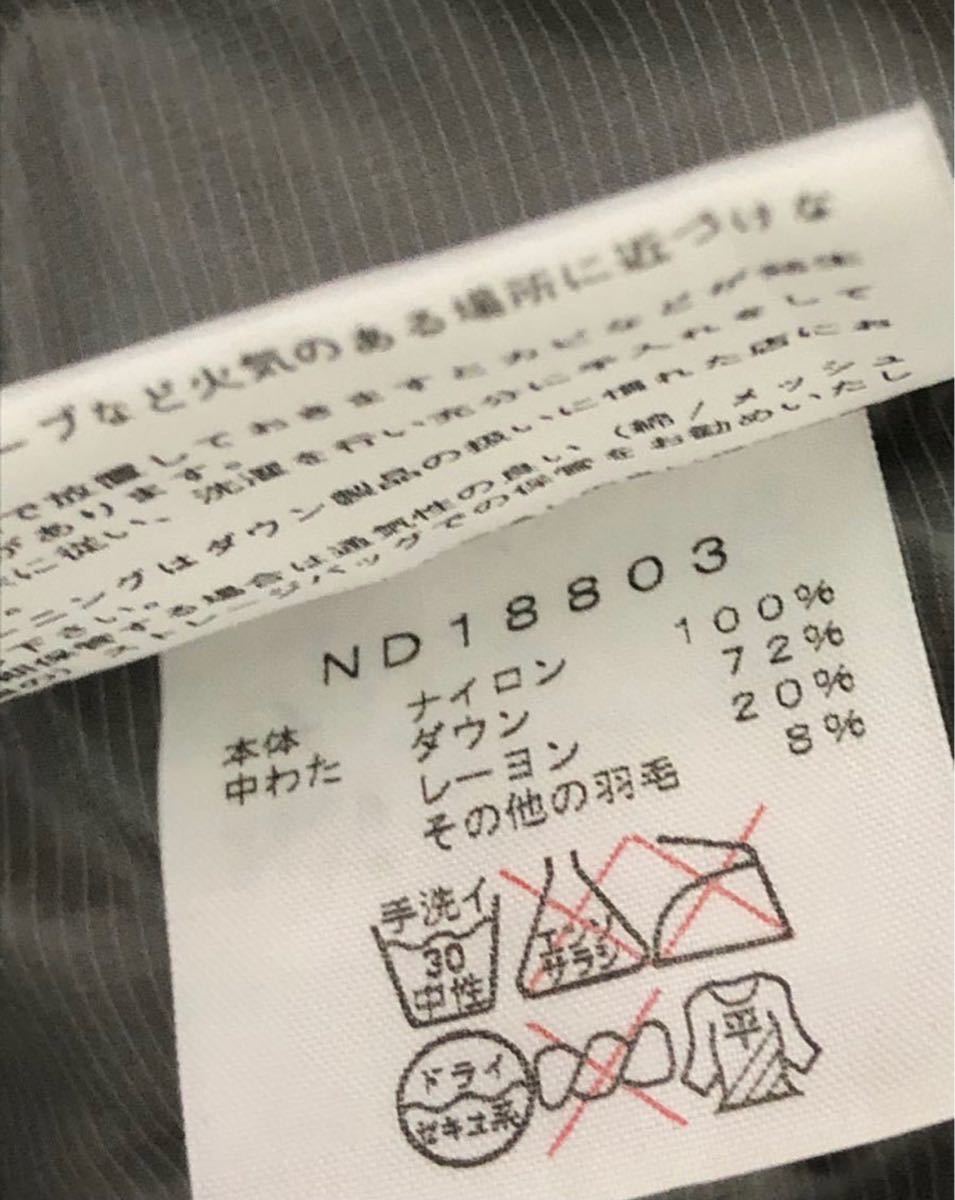 ープなど火気のある場所に近づけな
で放置しておきますとカビなどが発生
があります。
に従い、洗濯を行い充分に手入れをして
ニングはダウン製品の扱いに慣れた店にお
下さい。
期保管する場合は通気性の良い（綿／メッシュ
ストレージバッグでの保管をお勧めいたし
ND18803
本体 ナイロン 100%
中わた ダウン 72%
レーヨン 20%
その他の羽毛 8%
手洗イ
30
中性
エンソ
サラシ
ドライ
セキユ系
平